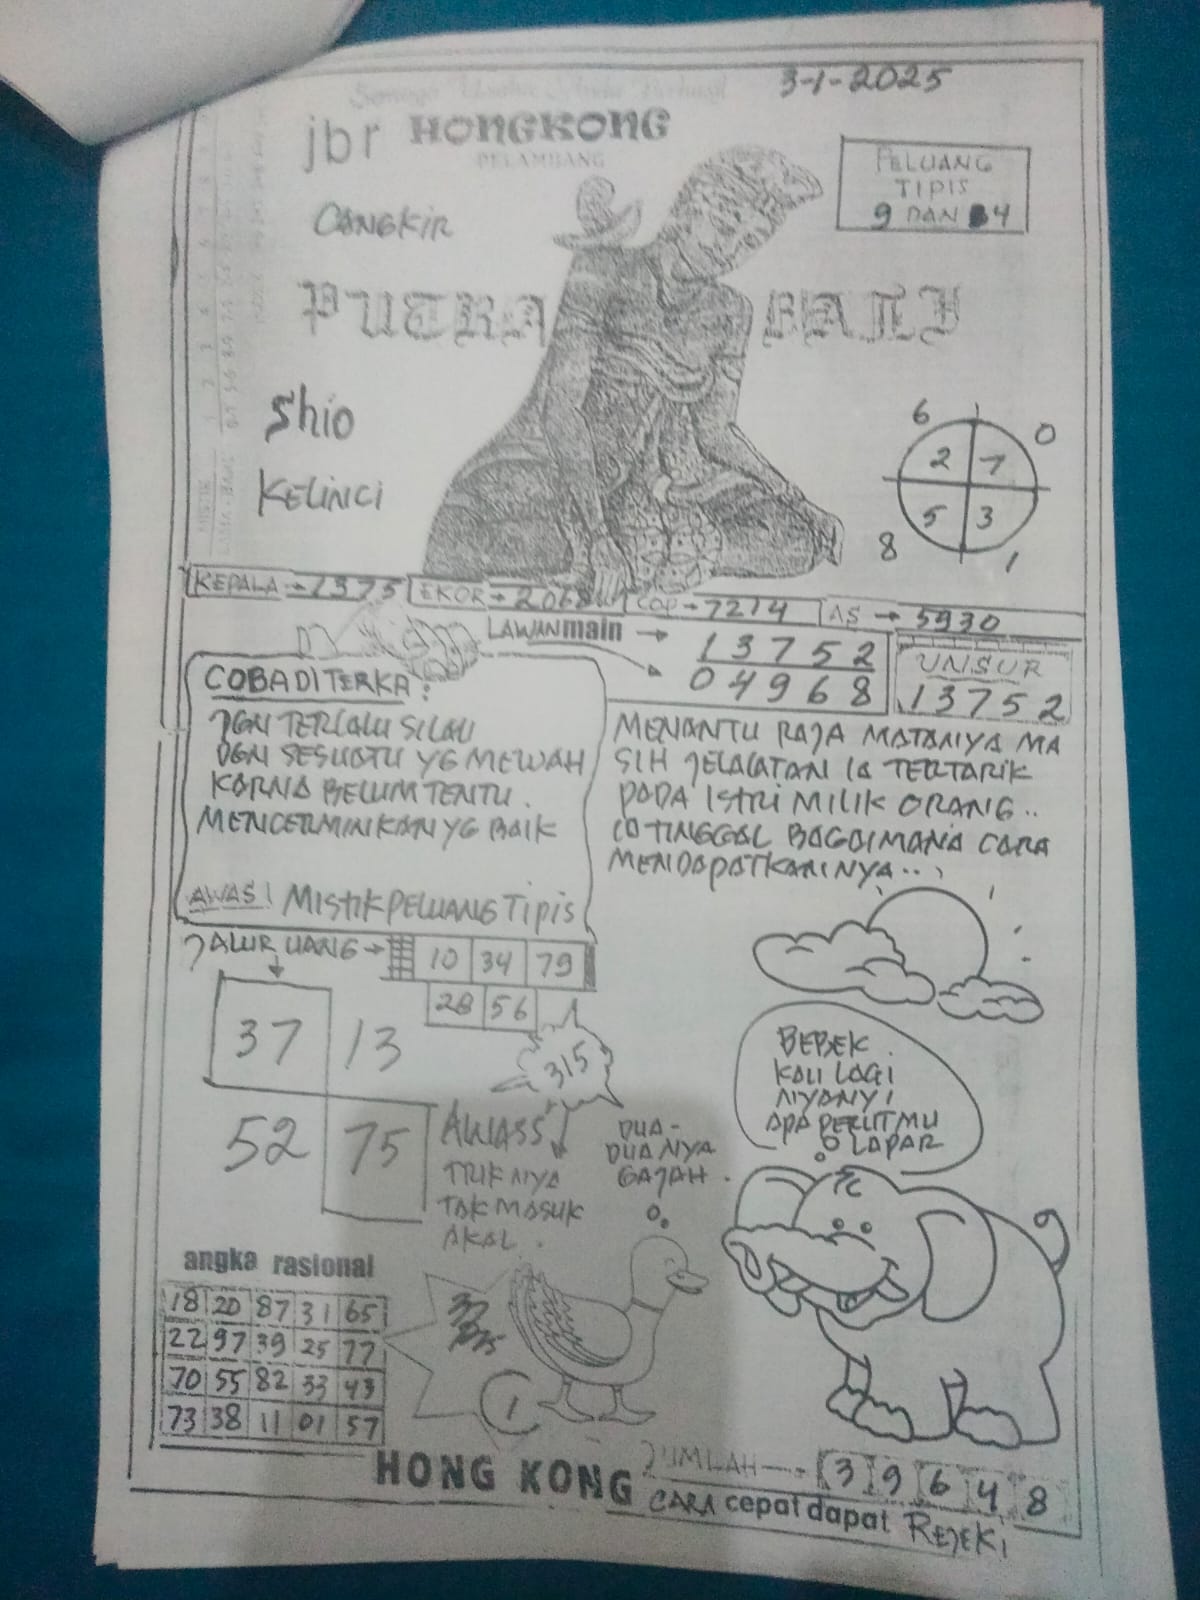 3-1-2025
jbr HONGKONG
PELAMBANG
PELUANG
TIPIS
9 DAN 4
CANGKIR
PUTRA
Shio
KELINCI
6
0
2 7
5 3
8
1
KEPALA → 1375
EKOR → 2068
COP → 7214
AS → 5930
LAWAN main →
13752
04968
UNSUR
13752
COBA DITERKA :
JGN TERLALU SILAU
DGN SESUATU YG MEWAH
KARNA BELUM TENTU.
MENCERMINKAN YG BAIK
AWAS! MISTIK PELUANG TIPIS
MENANTU RAJA MATANYA MA
SIH JELALATAN IA TERTARIK
PADA ISTRI MILIK ORANG..
IA TINGGAL BAGAIMANA CARA
MENDAPATKANNYA...
JALUR UANG →
10 34 79
28 56
37 13
52 75
315
AWASS
TRIKNYA
TAK MASUK
AKAL.
DUA-
DUANYA
GAJAH.
BEBEK
KALI LAGI
NYANYI
APA PERUTMU
LAPAR
angka rasional
18 20 87 31 65
22 97 39 25 77
70 55 82 33 43
73 38 11 01 57
1
HONG KONG
JUMLAH → 3 9 6 4 8
CARA cepat dapat REJEKI